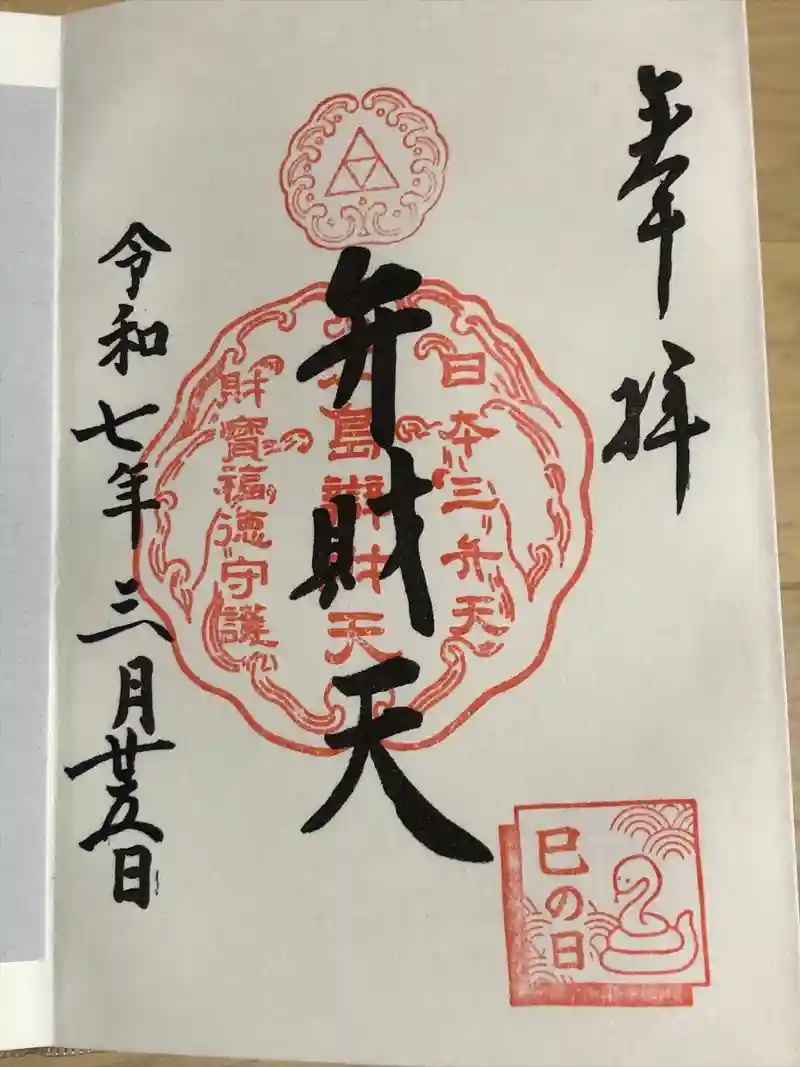 奉拝
日本三弁天
弁財天
島辯財天
財寶福徳守護
令和七年三月廿五日
巳の日